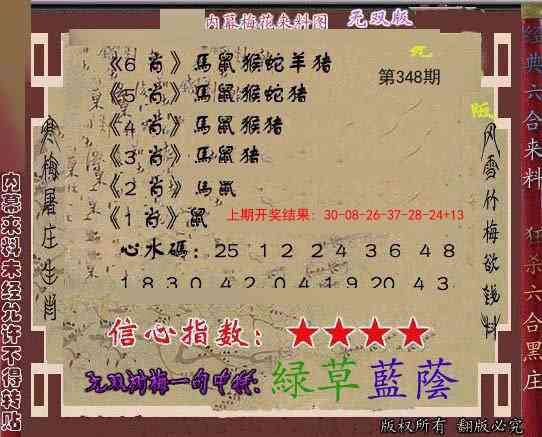 内幕梅花来料图 无双版
第348期
《6 肖》馬鼠猴蛇羊猪
《5 肖》馬鼠猴蛇猪
《4 肖》馬鼠猴猪
《3 肖》馬鼠猪
《2 肖》馬鼠
《1 肖》鼠
上期开奖结果: 30-08-26-37-28-24+13
心水碼: 25 12 24 36 48
18 30 42 04 19 20 43
信心指数: ★★★★
绿草藍蔭
寒梅屠庄生肖
风雪竹梅欲钱料
内幕来料未经允许不得转贴
经典六合来料
狂杀六合黑庄
版权所有 翻版必究